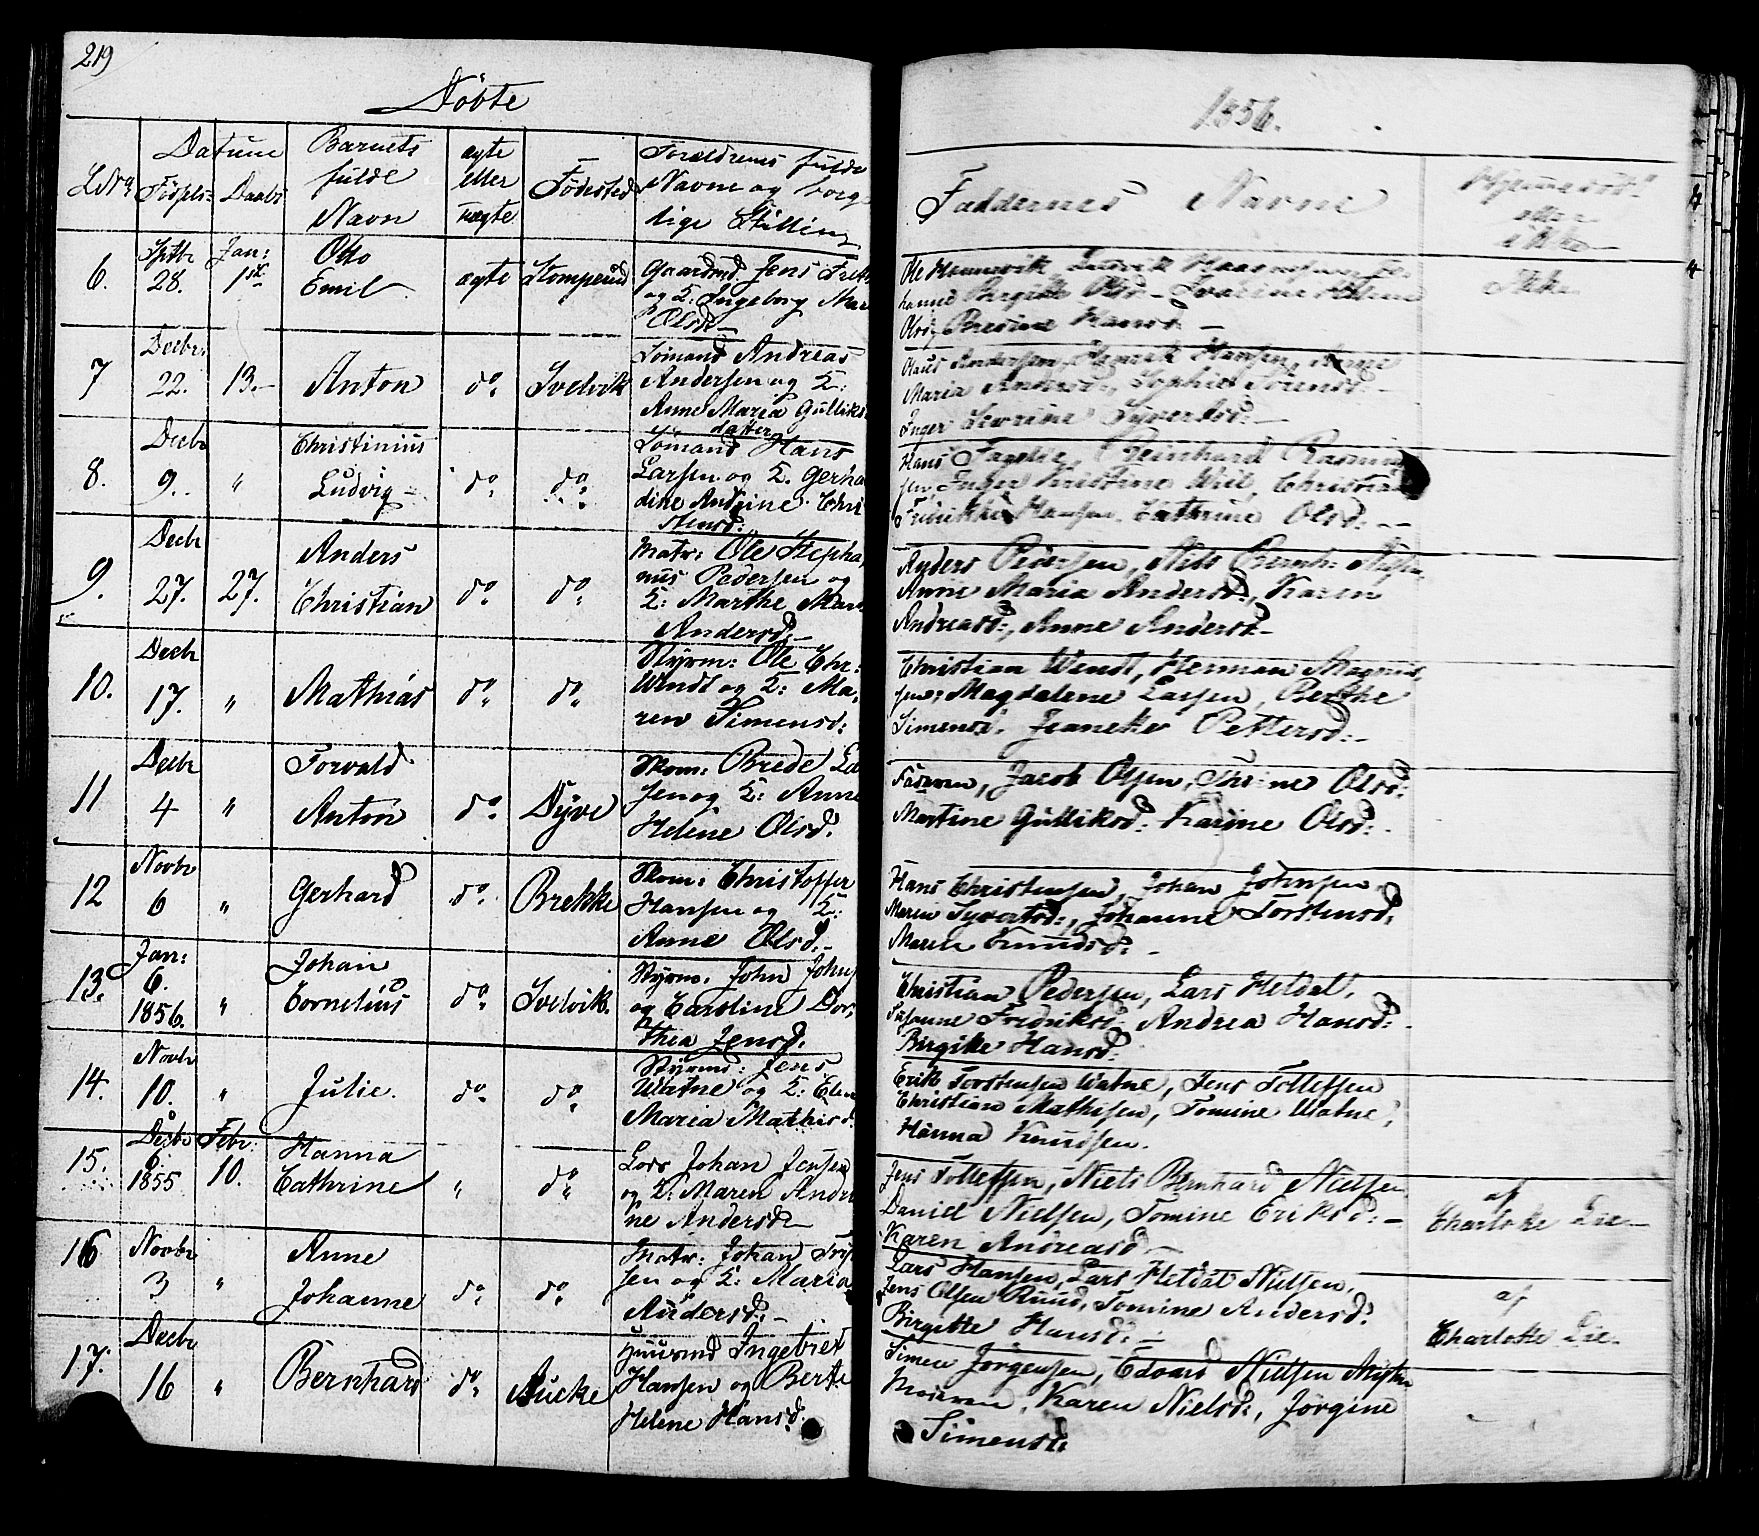 219
Döbte
1856.
L.Nr.
Datum
Fødsels:
Daabs
Barnets
fulde
Navn
ægte
eller
uægte
Födested
Forældrenes fulde
Navne og borg
lige Stilling
Faddernes Navne
Hjemmedöbt
eller
ikke
6.
Septbr
28.
Jan:
1ste
Otto
Emil
ægte
Stomperud
Gaardmd Jens
og K: Ingeborg Mar
Olsd
Ole Ludvik
Birgitte Olsd
Olsd, Hansd: —
Ikke
7
Decbr:
22.
13.
Anton
do
Svelvik
Sömand Andreas
Andersen og K:
Anne Maria Gulliks
datter
Olaus Andersen, Henrik Hansen, Anne
Maria Andersd:, Sophie Sörensd:
Inger Severine Syvertsd: —
8.
Decbr
9.
"
Christinius
Ludvig
do
do
Sömand Hans
Larsen og K. Gerha
dine Andrine Chri
stensd:
Hans Fagelie, Reinhard Rasmus
sen, Inger Christine Wiil, Christian
Fredrikke Hansen. Cathrine Olsd: —
9.
Decbr
27.
27.
Anders
Christian
do
do
Matr: Ole Stepha
nus Pedersen og
K: Marthe Mari
Andersd: —
Anders Pedersen, Nils Bernh: Nilsen
Anne Maria Andersd:, Karen
Andreasd:, Anne Andersd —
10.
Decbr
17.
"
Mathias
do
do
Styrm: Ole Chr:
Wendt og K: Ma
ren Simensd:
Christian Wendt, Herman Magnus
sen, Magdalene Larsen, Berthe
Simensd. Jeaneke Pettersd: —
11
Decbr
4
"
Torvald
Anton
do
Dyve
Skom: Brede La
sen og K: Anne
Helene Olsd.
Faderen, Jacob Olsen, Thrine Olsd:
Martine Gulliksd: Karine Olsd: .
12
Novbr
6
"
Gerhard
do
Brekke
Skom: Christoffer
Hansen og K:
Anne Olsd: —
Hans Christensen, Johan Johnsen,
Maren Syvertsd:, Johanne Torstensd:
Maren Knudsd: —
13.
Jan:
6.
1856.
"
Johan
Cornelius
do
Svelvik.
Styrm: John Johns
og Caroline Dor
thea Jensd.
Christian Pedersen, Lars Hetdal,
Susanne Fredriksd: Andrea Hansd:
Birgitte Hansd:
14.
Novbr
10.
"
Julie.
do
do
Styrmd: Jens
Watne og K: Elen
Maria Mathisd
Erik Torstensen Watne, Jens Tollefsen
Christian Mathisen, Tomine Watne,
Hanna Knudsen.
15.
Decbr
6
1855
Febr:
10.
Hanna
Cathrine
"
do
Lods Johan Jensen
og K: Maren Andri
ne Andersd —
Jens Tollefsen, Niels Bernhard Nielsen
Daniel Nielsen, Tomine Eriksd: —
Karen Andreasd —
af
Charlotte Lie —
16
Novbr
3
"
Anne
Johanne
do
do
Matr: Johan
sen og K: Maria
Andersd: —
Lars Hansen, Lars Hetdal Nielsen,
Jens Olsen Ruud, Tomine Andersd:
Birgitte Hansd: —
af
Charlotte Lie.
17.
Decbr
16
"
Bernhard
do
Aucke
Huusmd Ingebret
Hansen og Berte
Helene Hansd.
Simen Jörgensen, Edvard Nielsen
Moderen, Karen Nielsd:, Jörgine
Simensd: